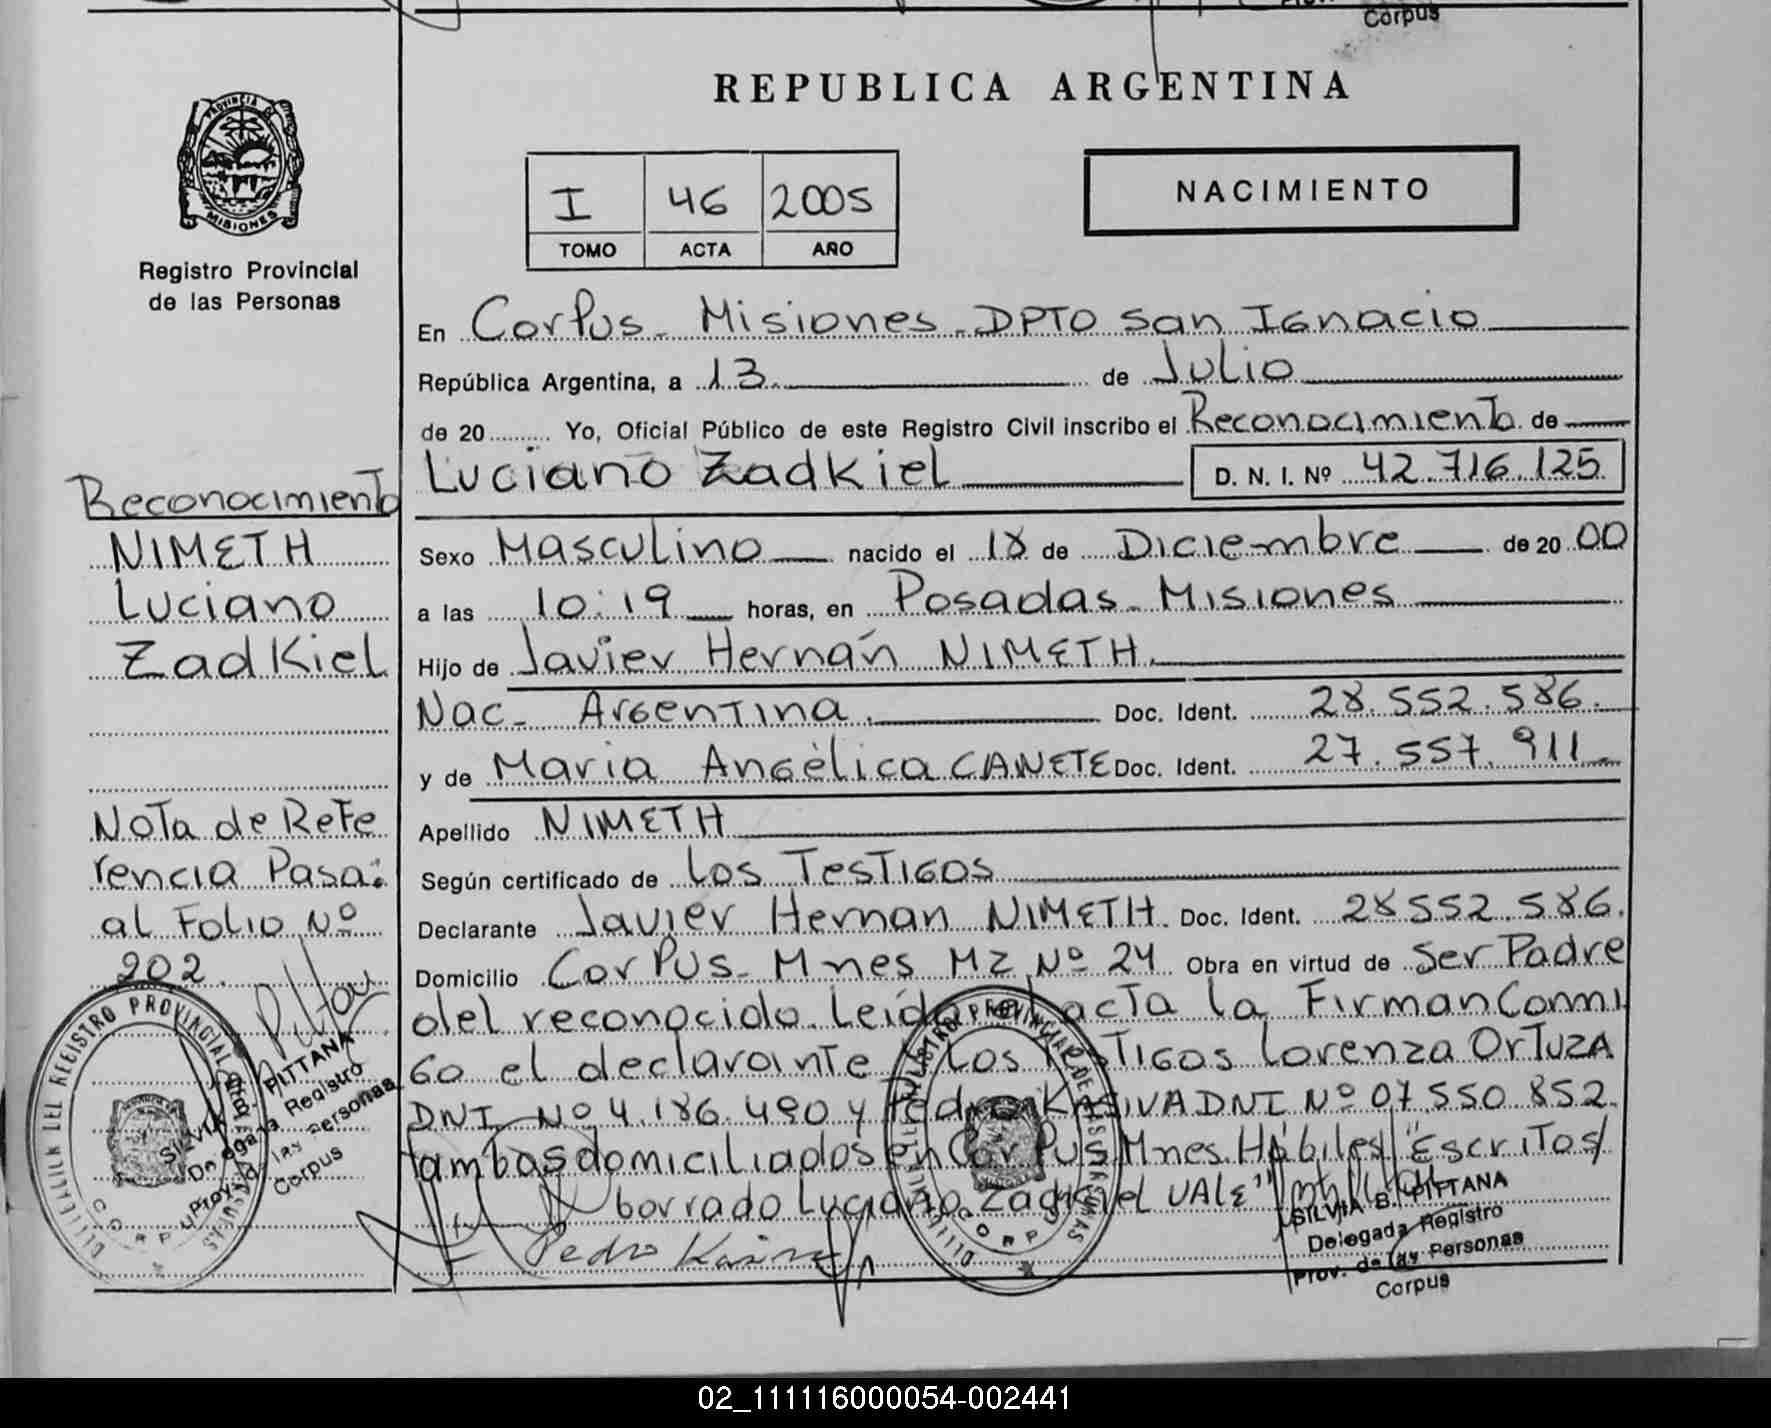 Corpus
REPUBLICA ARGENTINA
PROVINCIA DE
MISIONES
Registro Provincial
de las Personas
I 46 2005
TOMO ACTA AÑO
NACIMIENTO
En Corpus - Misiones - DPTO San Ignacio
República Argentina, a 13 de Julio
de 20 Yo, Oficial Público de este Registro Civil inscribo el Reconocimiento de
Luciano Zadkiel D. N. I. Nº 42.716.125
Sexo Masculino nacido el 18 de Diciembre de 20 00
a las 10:19 horas, en Posadas - Misiones
Hijo de Javier Hernán NIMETH
Nac - Argentina Doc. Ident. 28.552.586.
y de Maria Angélica CANETE Doc. Ident. 27.557.911
Apellido NIMETH
Según certificado de Los Testigos
Declarante Javier Hernan NIMETH Doc. Ident. 28552.586.
Domicilio Corpus - Mnes Mz Nº 24 Obra en virtud de Ser Padre
del reconocido. Leída acta la Firman Conmi
Go el declarante Los Testigos Lorenza OrTuZA
DNI Nº 4.186.490 y Pedro KASIVA DNI Nº 07.550.852
ambos domiciliados en Corpus Mnes. Hábiles "Escritos/
borrado Luciano Zadkiel VALE"
Pedro
SILVIA B. PITTANA
Delegada Registro
Prov. de las Personas
Corpus
Reconocimiento
NIMETH
Luciano
Zadkiel
Nota de Refe
rencia Pasa:
al Folio Nº
202
REGISTRO PROVINCIAL
CORPUS
SILVIA PITTANA
Delegada Registro
Prov. de las Personas
Corpus
02_111116000054-002441